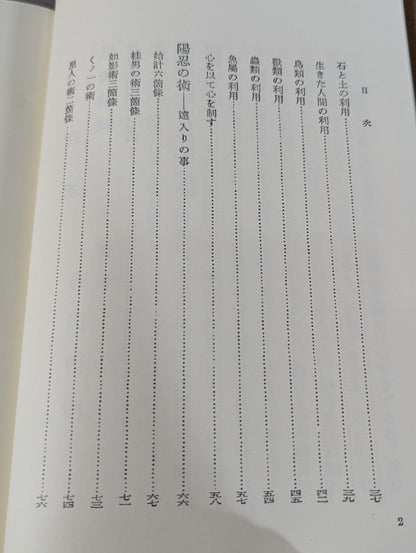 目次
石と土の利用 三七
生きた人間の利用 三九
鳥類の利用 四二
獸類の利用 四五
蟲類の利用 五四
魚屬の利用 五七
心を以て心を制す 五八
陽忍の術——遠入りの事 六六
始計六箇條 六七
桂男の術三箇條 七一
如影術三箇條 七三
くノ一の術 七四
里人の術二箇條 七六
2